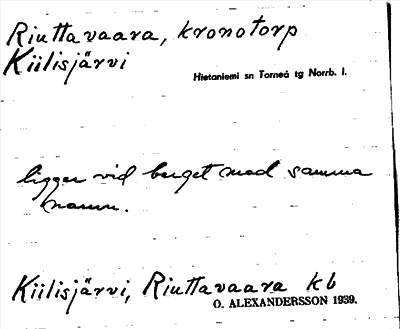 Riuttavaara, kronotorp
Kiilisjärvi
Hietaniemi sn Torneå tg Norrb. l.
ligger vid berget med samma
namn.
Kiilisjärvi, Riuttavaara kb
O. ALEXANDERSSON 1939.